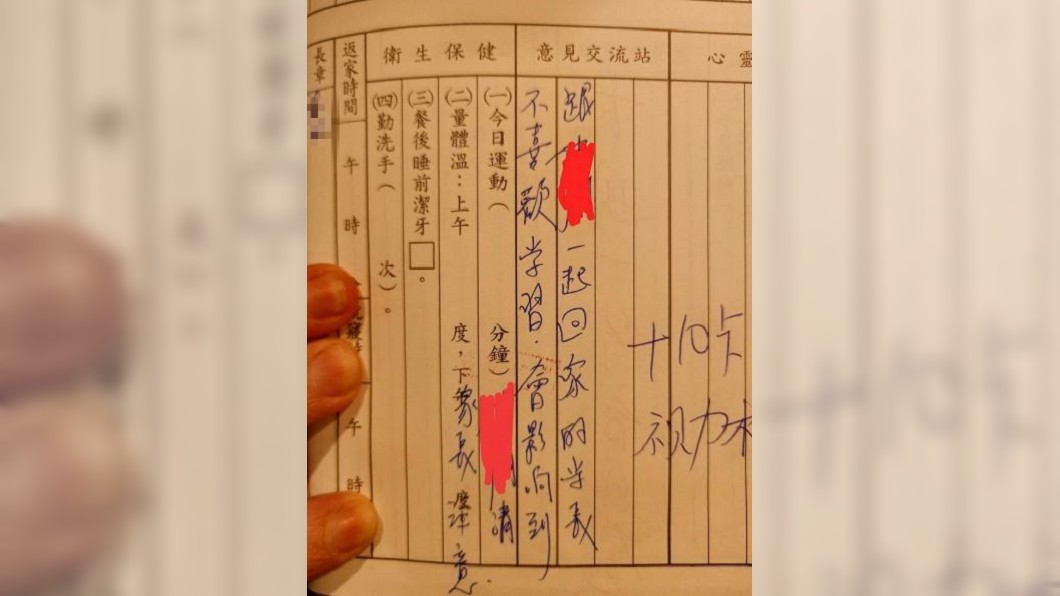 心靈
意見交流站
衛生保健
返家時間
長章
十10卡
視力
跟 一起回家的学長
不喜歡学習.會影响到
請
家長 意.
㈠今日運動( 分鐘)
㈡量體溫：上午 度，下
㈢餐後睡前潔牙□。
㈣勤洗手( 次)。
午 時
午 時